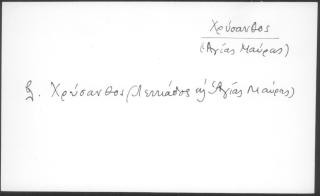 Χρύσανθος
(Ἁγίας Μαύρας)
Χρύσανθος (Λευκάδος κ Ἁγίας Μαύρας)